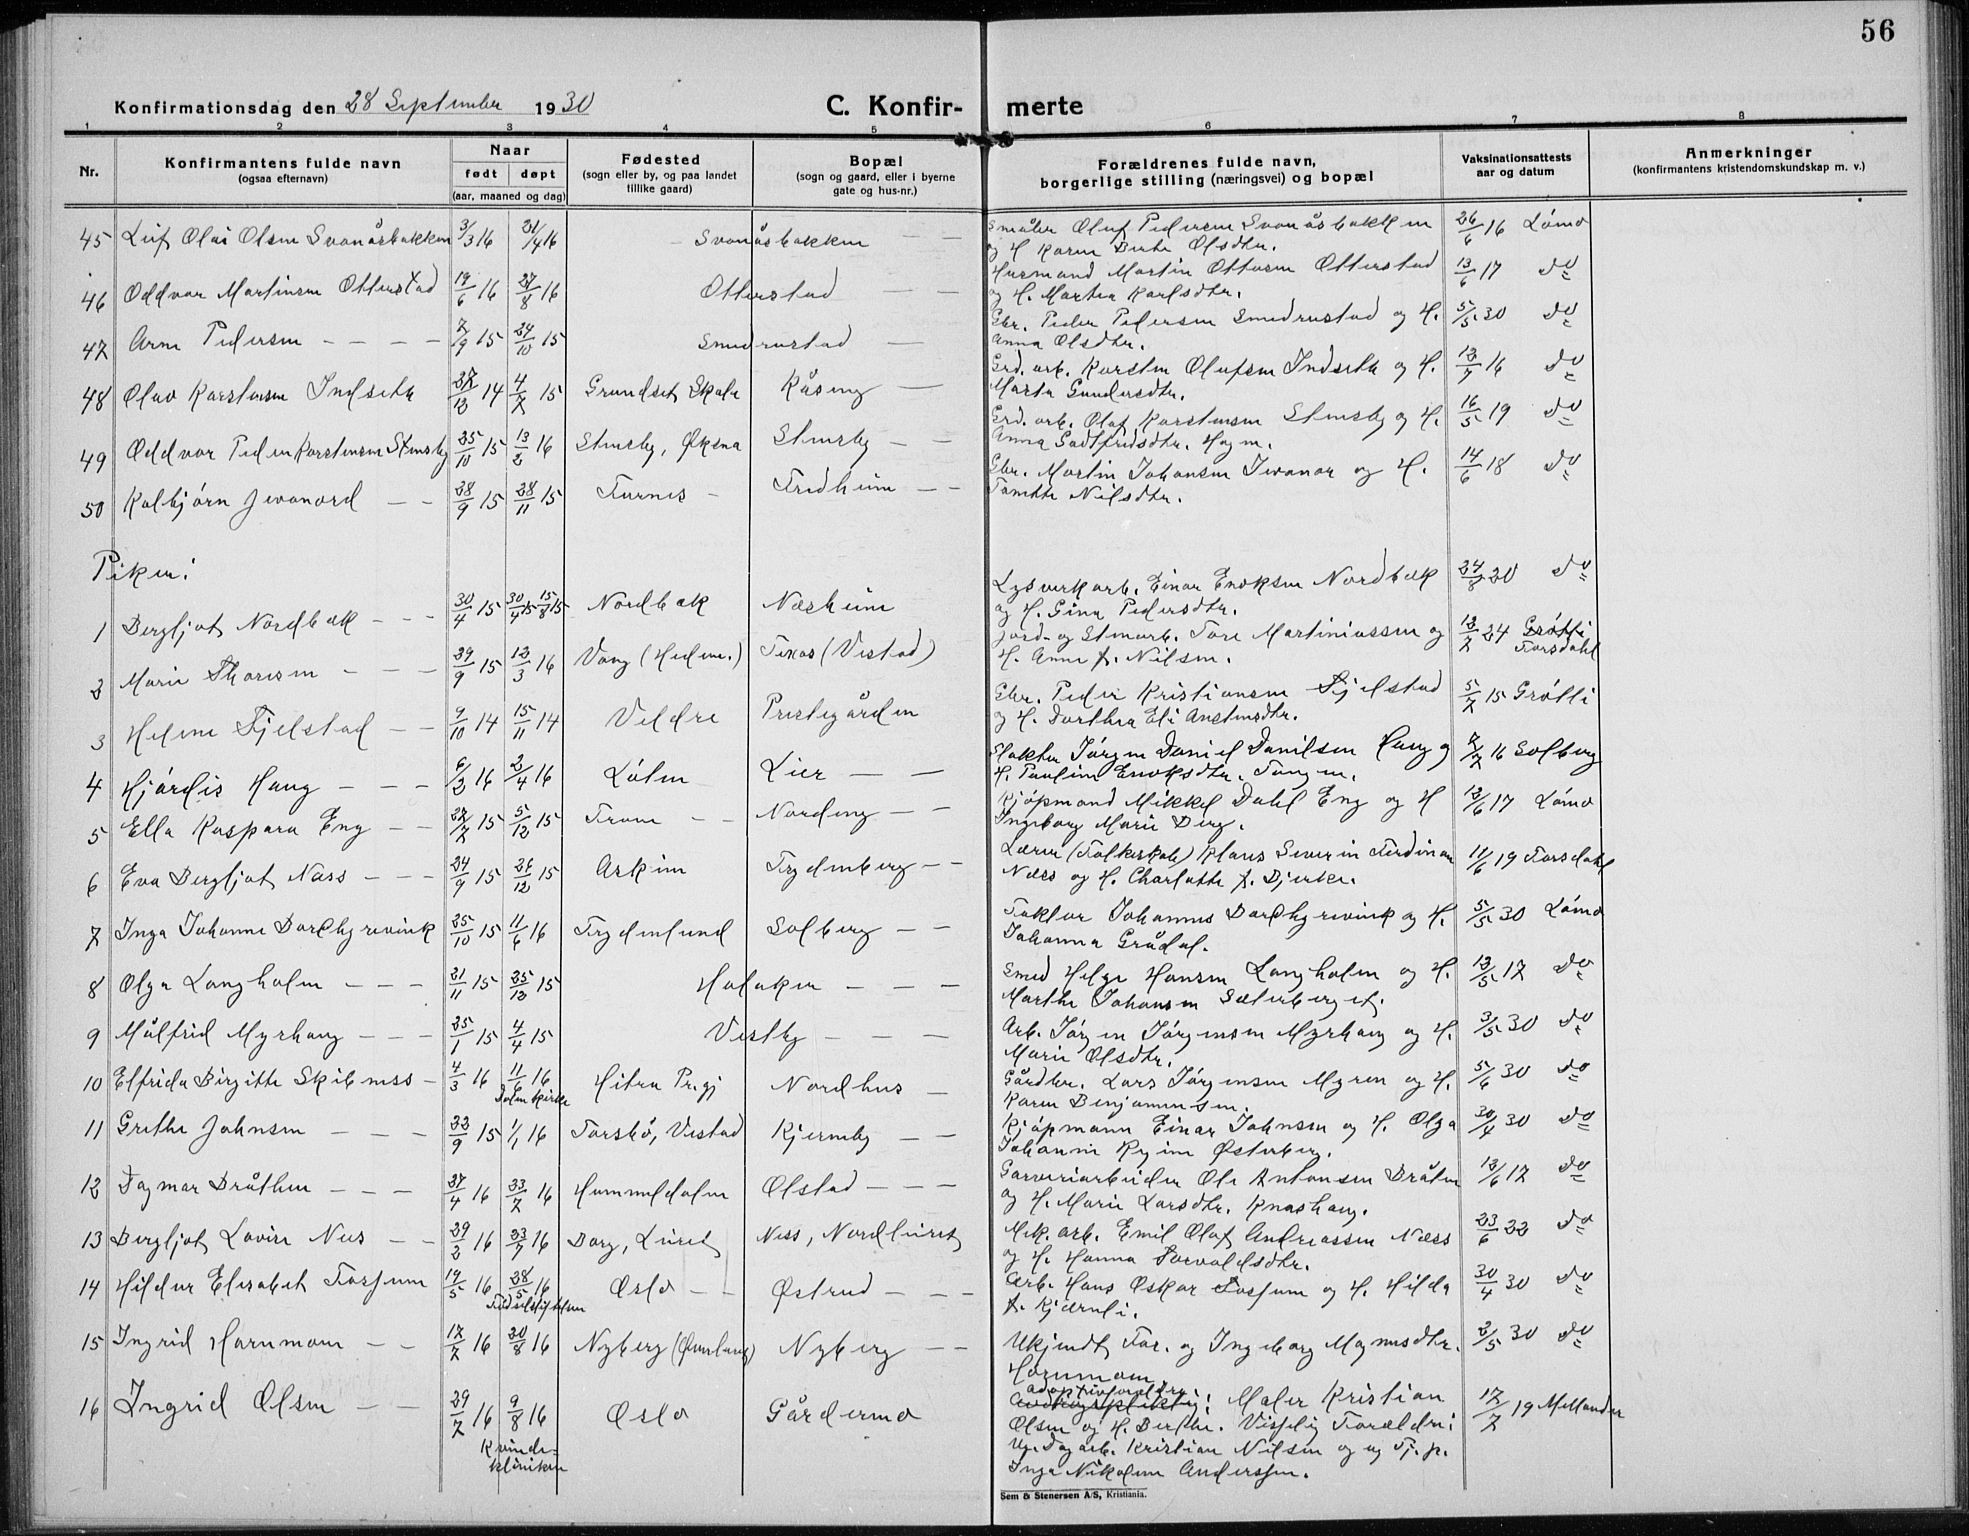 56
Konfirmationsdag den 28 September 1930
C. Konfir- merte
1 2 3 4 5 6 7 8
Nr.
Konfirmantens fulde navn
(ogsaa efternavn)
Naar
født døpt
(aar, maaned og dag)
Fødested
(sogn eller by, og paa landet
tillike gaard)
Bopæl
(sogn og gaard, eller i byerne
gate og hus-nr.)
Forældrenes fulde navn,
borgerlige stilling (næringsvei) og bopæl
Vaksinationsattests
aar og datum
Anmerkninger
(konfirmantens kristendomskundskap m. v.)
45 Leif Olai Olsen Svenåsbakken 3/3 16 /4 16 Svenåsbakken Småbr. Oluf Pedersen Svenåsbakken 26/6 16 Lömo
og H. Karen Berte Olsdtr.
46 Oddvar Martinsen Otterstad 19/6 16 27/8 16 Otterstad Husmand Martin Ottosen Otterstad 13/6 17 do
og H. Martea Karlsdtr.
47 Arne Pedersen 7/9 15 24/10 15 Smedrustad Gbr. Peder Pedersen Smedrustad og H. 5/5 30 do
Anna Olsdtr.
48 Olav Karstensen Indseth 27/12 14 4/7 15 Grundset Skole Råseng Grd. arb. Karsten Olufsen Indseth og H. 12/7 16 do
Marta Gundersdtr.
49 Oddvar Peder Karstensen Stensby 25/10 15 13/2 16 Stensby, Øksna Stensby Grd. arb. Olaf Karstensen Stensby og H. 16/5 19 do
Anna Gotfredsdtr. Hagen.
50 Kolbjörn Jevanord 28/9 15 28/11 15 Furnes Fredheim Gbr. Martin Johansen Jevanor og H. 14/6 18 do
Tomthe Nilsdtr.
Piker:
1 Bergljot Nordbæk 30/4 15 30/4 15 15/8 15 Nordbæk Næsheim Lysverkarb. Einar Enoksen Nordbæk 24/8 20 do
og H. Gina Pedersdtr.
2 Marie Thoresen 29/9 15 12/3 16 Vang (Hedm.) Texas (Vestad) Jord- og Stenarb. Tore Martiniussen og 12/7 24 Grötli Forsdahl
H. Anne f. Nilsen.
3 Helene Fjelstad 9/10 14 15/11 14 Veldre Prestegården Gbr. Peder Kristiansen Fjelstad 5/7 15 Grötli
og H. Dorthea Eli Anstensdtr.
4 Hjördis Haug 6/2 16 2/4 16 Löten Lier Slakter Jörgen Daniel Danielsen Haug og 7/7 16 Solberg
H. Pauline Enoksdtr. Tangen.
5 Ella Kaspara Eng 27/7 15 5/12 15 Fron Nordeng Kjöpmand Mikkel Dahl Eng og H 12/6 17 Lömo
Ingeborg Marie Berg.
6 Eva Bergljot Næss 24/9 15 26/12 15 Askim Frydenberg Lærer (Folkeskole) Klaus Severin Ferdinan 11/6 19 Forsdahl
Næss og H. Charlotte f. Bjerke.
7 Inga Johanne Bardhgrevink 25/10 15 11/6 16 Frydenlund Solberg Faktor Johannes Bardhgrevink og H. 5/5 30 Lömo
Johanna Grådal.
8 Olga Langholm 21/11 15 25/12 15 Haloken Smed Helge Hansen Langholm og H. 12/5 17 do
Marthe Johansen Sæterberget.
9 Målfrid Myrhaug 25/1 15 4/4 15 Vestby Arb. Jörgen Jörgensen Myrhaug og H. 3/5 30 do
Marie Olsdtr.
10 Elfrida Birgitte Skibenes 4/3 16 11/6 16 Hitra Prgj Nordhus Gårdbr. Lars Jörgensen Myren og H. 5/6 30 do
Dolm kirke
Karen Benjaminsen.
11 Grethe Johnsen 22/9 15 1/1 16 Forsbö, Vestad Kjernby Kjöpmann Einar Johnsen og H. Olga 30/4 30 do
Johanne Østerberg.
12 Dagmar Bråthen 27/4 16 23/7 16 Hummeldalen Olstad Garveriarbeider Ole Antonsen Bråten 12/6 17 do
og H. Marie Larsdtr. Knashaug.
13 Bergljot Lovise Nes 29/2 16 23/7 16 Borg, Luret Ness, Nordluret Mek. arb. Emil Olaf Andreassen Næss 23/6 22 do
og H. Hanna Torvaldsdtr.
14 Hildur Elisabet Fossum 19/5 16 28/5 16 Oslo Østrud Arb. Hans Oskar Fossum og H. Hilda 30/4 30 do
Födselsstiftelsen
f. Kjærnli.
15 Ingrid Hornmoen 17/7 16 20/8 16 Nyberg Nyberg Ukjendt Far. og Ingeborg Magnusdtr. 2/5 30 do
Hornmoen
16 Ingrid Olsen 29/7 16 9/8 16 Oslo Gårdermo adoptivforeldre: Maler Kristian 17/7 19 Mellander
Kvinde-
klinikken
Olsen og H. Berthe. Virkelig Foreldre:
Ug. Dagarb. Kristian Nilsen og ug. Tj. p.
Inga Nikoline Andersen.
Sem & Stenersen A/S, Kristiania.